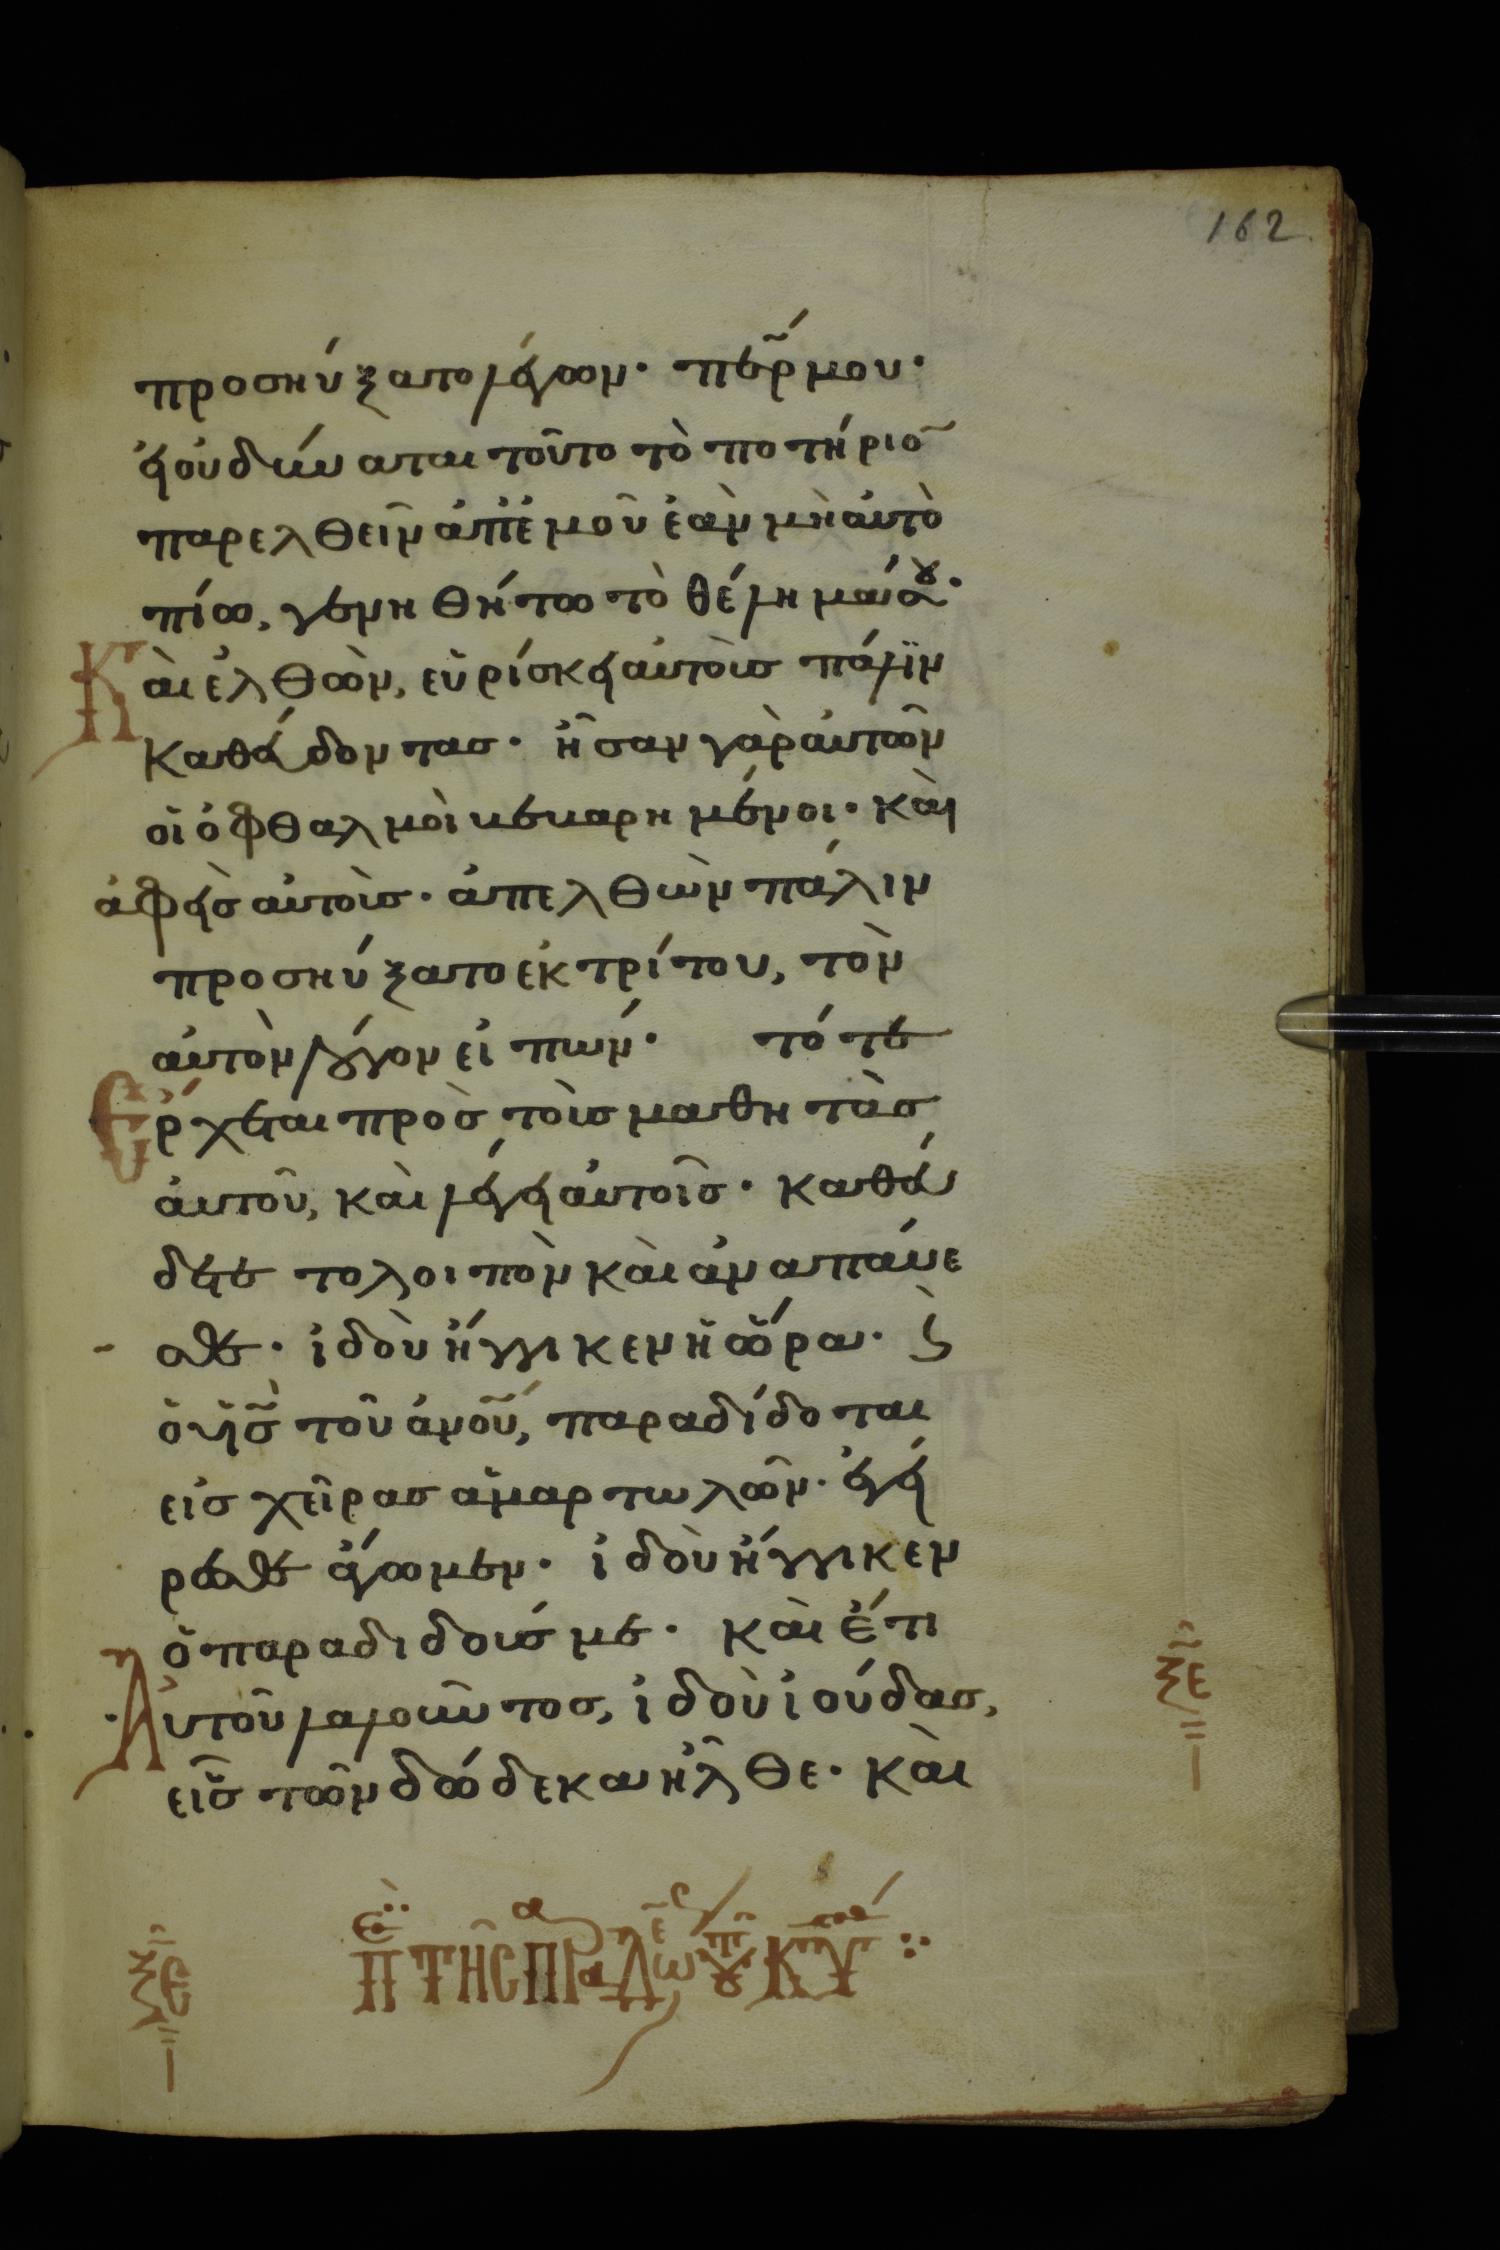 162
προσηύξατο λέγων· πε̅ρ μου·
εἰ οὐ δύναται τοῦτο τὸ ποτήριο̅
παρελθεῖν ἀπ' ἐμοῦ ἐὰν μὴ ἀυτὸ
πίω, γενηθήτω τὸ θέλημά σου·
Κὰι ἐλθὼν, εὑρίσκει αὐτοὺς πάλϊν
καθεύδοντας· ἦσαν γὰρ ἀυτῶν
οἱ ὀφθαλμοὶ κεκαρημένοι· κὰι
ἀφεὶς αὐτοὺς· ἀπελθὼν πάλιν
προσηύξατο ἐκ τρίτου, τὸν
ἀυτὸν λόγον εἰπών· τότε
Ἔρχεται πρὸς τοὺς μαθητὰς
ἀυτοῦ, κὰι λέγει ἀυτοῖς· καθεύ
δετε τολοιπὸν κὰι ἀναπάυε
σθε· ἰδοὺ ἤγγικεν ἡ ὥρα· ϛ̀
ὁ υἱ̅ς τοῦ ἀν̅ου, παραδίδοται
εἰς χεῖρας ἁμαρτωλῶν· ἐγεί
ρεσθε ἄγωμεν· ἰδοὺ ἤγγικεν
ὁ παραδιδούς με· κὰι ἔτι
Ἀυτοῦ λαλοῦντος, ἰδοὺ ἰούδας,
εἷς τῶν δώδεκα ἦλθε· κὰι
ξε̅
ξε̅